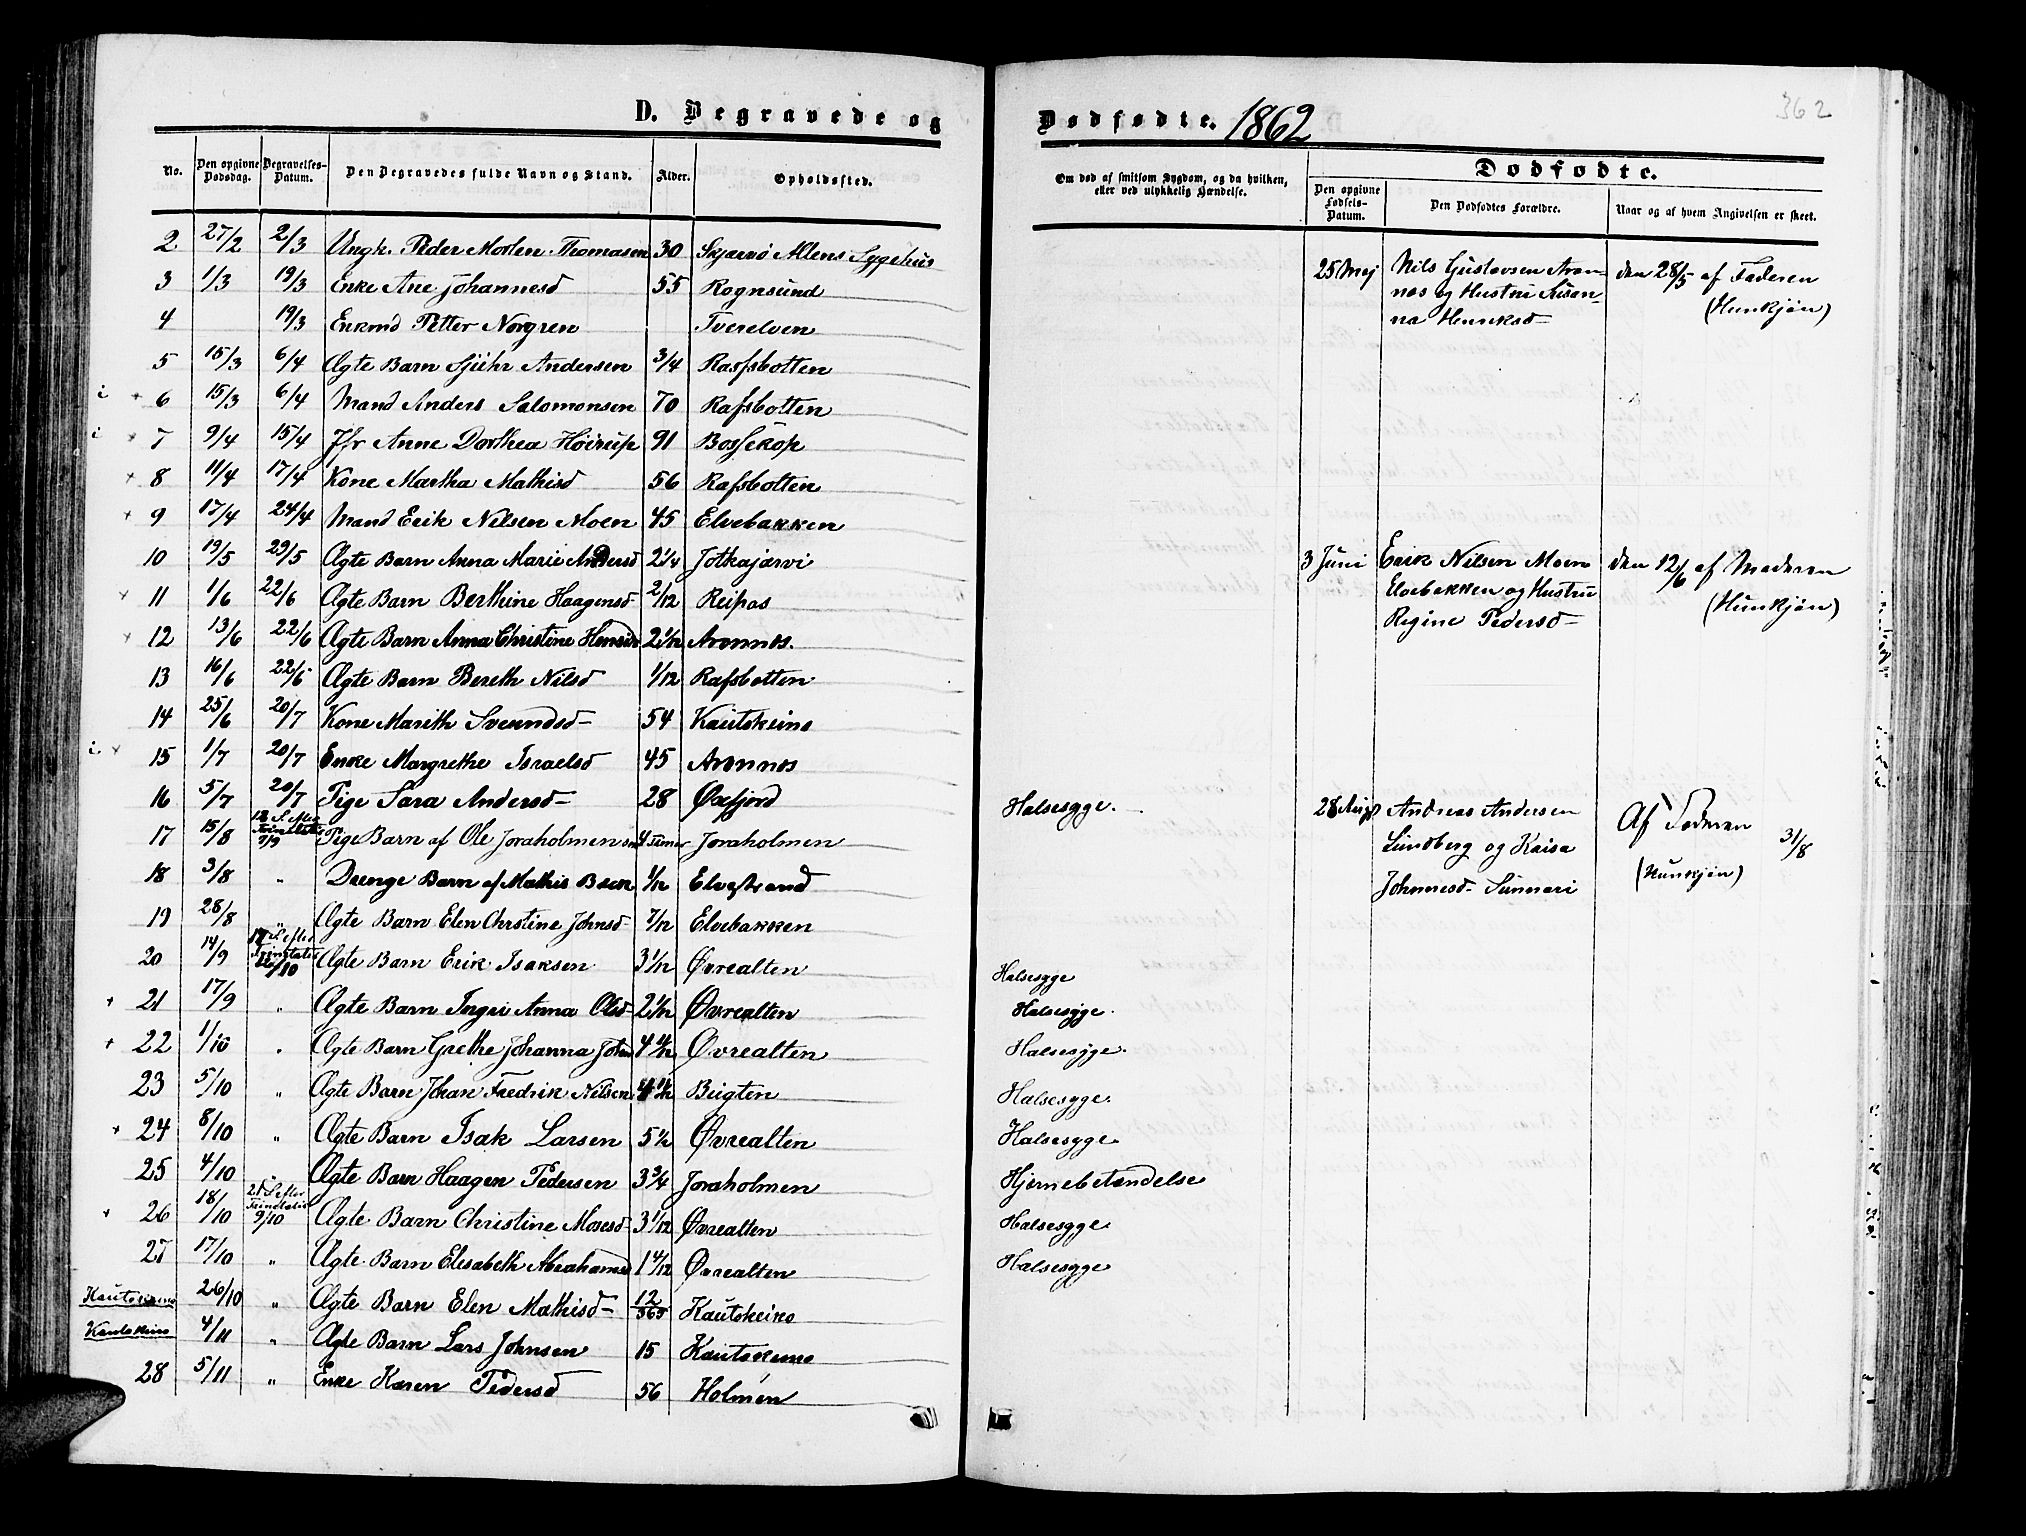 D. Begravede og
Dødfødte. 1862
362
No.
Den opgivne Dødsdag.
Begravelses-Datum.
Den Begravedes fulde Navn og Stand.
Alder.
Opholdssted.
Om død af smitsom Sygdom, og da hvilken,
eller ved ulykkelig Hændelse.
Dødfødte.
Den opgivne Fødsels-Datum.
Den Dødfødtes Forældre.
Naar og af hvem Angivelsen er skeet.
2 27/2 2/3 Ungk. Peder Morten Thomasen 30 Skjærvø Altens Sygehus
3 1/3 19/3 Enke Ane Johannesd 55 Rognsund
4 19/3 Enkmd Petter Norgren Tverelven
5 15/3 6/4 Ægte Barn Sjuhr Andersen 3/4 Rafsbotten
i + 6 15/3 6/4 Mand Anders Salomonsen 70 Rafsbotten
i + 7 9/4 15/4 Jfr Anne Dorthea Høirup 91 Bossekop
+ 8 11/4 17/4 Kone Martha Mathisd 56 Rafsbotten
+ 9 17/4 24/4 Mand Erik Nilsen Moen 45 Elvebakken
10 19/5 29/5 Ægte Barn Anna Marie Andersd 2 1/4 Jotkajarvi
+ 11 1/6 22/6 Ægte Barn Berthine Haagensd 2/12 Reipas
+ 12 13/6 22/6 Ægte Barn Anna Christine 2 1/12 Aronnes.
13 16/6 22/6 Ægte Barn Bereth Nilsd 1/12 Rafsbotten
14 25/6 20/7 Kone Marith Svendsd 54 Kautokeino
i + 15 1/7 20/7 Enke Margrethe Israelsd 45 Aronnes
16 5/7 20/7 Pige Sara Andersd 28 Øxfjord Halsesyge.
17 15/8 12 S. efter Trinitatis 7/9 Pige Barn af Ole Joraholmen 4 Timer Joraholmen
18 3/8 " Drenge Barn af Mathis Beck 1/12 Elvestrand
19 28/8 " Ægte Barn Elen Christine Johnsd 7/12 Elvebakken
20 14/9 17 S. efter Trinitatis /10 Ægte Barn Erik Isaksen 3 1/12 Øvrealten Halsesyge
+ 21 17/9 " Ægte Barn Ingri Anna Olsd 2 1/12 Øvrealten Halsesyge.
+ 22 1/10 " Ægte Barn Grethe Johanna 4 4/12 Øvrealten Halsesyge.
23 5/10 " Ægte Barn Johan Fredrik Nilsen Bugten Halsesyge.
+ 24 8/10 " Ægte Barn Isak Larsen 5 1/2 Øvrealten Halsesyge
25 4/10 Ægte Barn Haagen Pedersen 3 3/4 Joraholmen Hjernebetændelse
+ 26 18/10 21 S. efter Trinitatis 9/10 Ægte Barn Christine Mosesd 3 1/12 Øvrealten Halsesyge
27 17/10 " Ægte Barn Elisabeth Abrahamsd 1 4/12 Øvrealten Halsesyge
Kautokeino 26/10 " Ægte Barn Elen Mathisd 12/365 Kautokeino
Kautokeino 4/11 " Ægte Barn Lars Johnsen 15 Kautokeino
28 5/11 " Enke Karen Pedersd 56 Holmen
25 Mej Nils Gustavsen Aron- den 28/5 af Faderen
nes og Hustru Susan- (Hunkjøn)
na Henriksd
3 Juni Erik Nilsen Moen den 12/6 af Moderen
Elvebakken og Hustru (Hunkjøn)
Regine Pedersd
28 Aug Andreas Andersen Af Faderen
Lundberg og Kaisa 31/8
Johnnesd Sunnari (Hunkjøn)